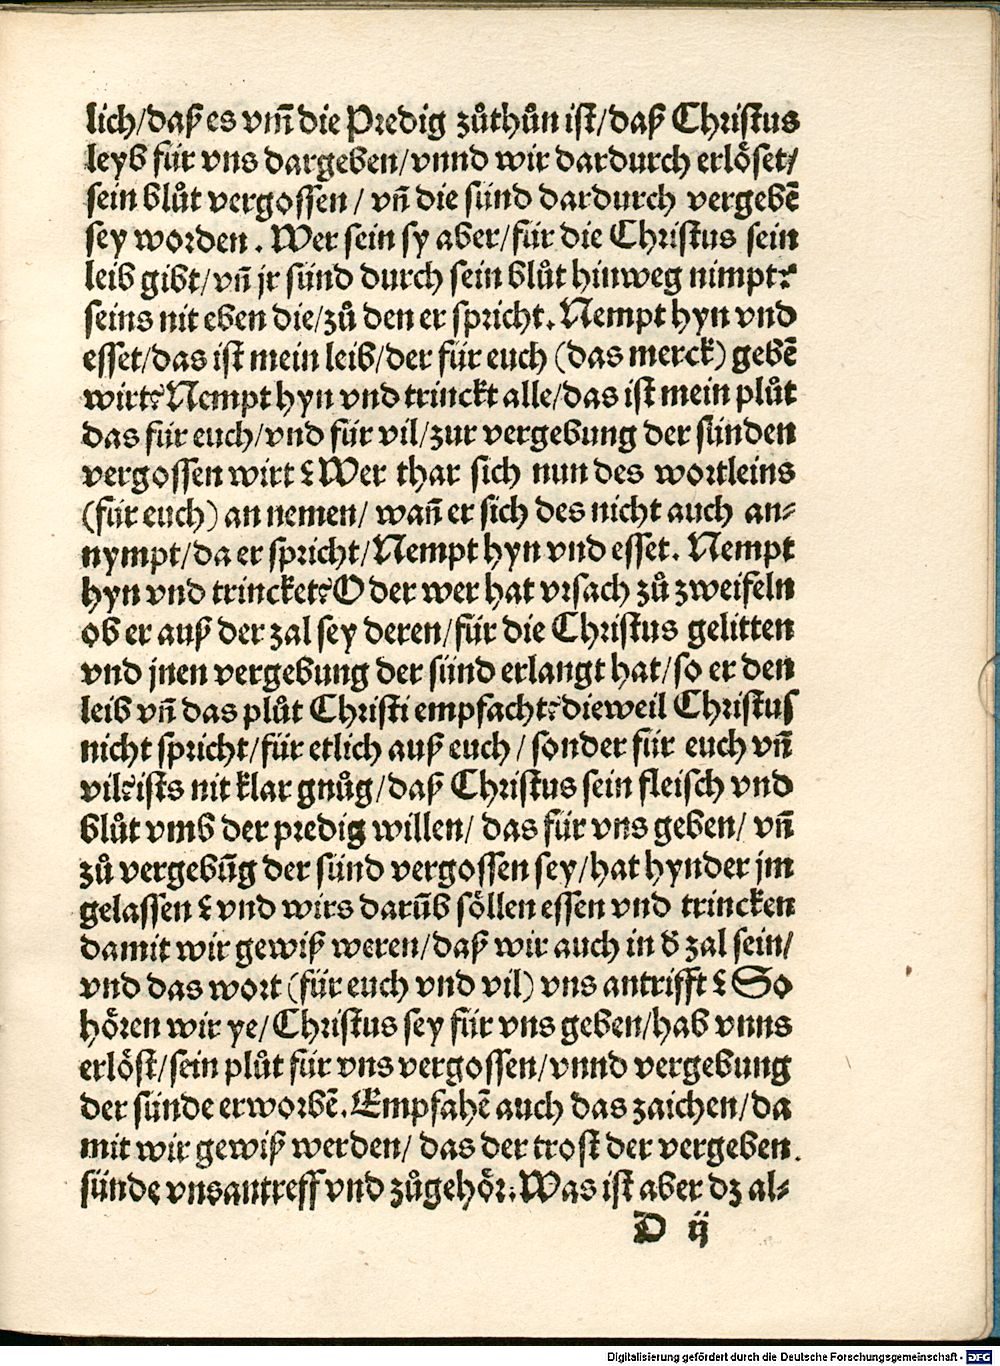 lich/daß es vm̃ die Predig zůthůn ist/daß Christus
leyb für vns dargeben/vnnd wir dardurch erlöset/
sein blůt vergossen / vñ die sünd dardurch vergebē
sey worden. Wer sein sy aber/für die Christus sein
leib gibt/vñ jr sünd durch sein blůt hinweg nimpt?
seins nit eben die/zů den er spricht. Nempt hyn vnd
esset/das ist mein leib/der für euch (das merck) gebē
wirt? Nempt hyn vnd trinckt alle/das ist mein plůt
das für euch/vnd für vil/zur vergebung der sünden
vergossen wirt? Wer thar sich nun des wortleins
(für euch) an nemen/ wañ er sich des nicht auch an-
nympt/da er spricht/Nempt hyn vnd esset. Nempt
hyn vnd trincket? Oder wer hat vrsach zů zweifeln
ob er auß der zal sey deren/für die Christus gelitten
vnd jnen vergebung der sünd erlangt hat/so er den
leib vñ das plůt Christi empfacht? dieweil Christus
nicht spricht/für etlich auß euch / sonder für euch vñ
vil? ists nit klar gnůg/daß Christus sein fleisch vnd
blůt vmb der predig willen/ das für vns geben/ vñ
zů vergebūg der sünd vergossen sey/hat hynder jm
gelassen? vnd wirs darūb söllen essen vnd trincken
damit wir gewiß weren/daß wir auch in d̕ zal sein/
vnd das wort (für euch vnd vil) vns antrifft? So
hören wir ye/Christus sey für vns geben/hab vnns
erlöst/sein plůt für vns vergossen/vnnd vergebung
der sünde erworbē. Empfahē auch das zaichen/da
mit wir gewiß werden/ das der trost der vergeben.
sünde vns antreff vnd zůgehör. Was ist aber dz al-
D ij
Digitalisierung gefördert durch die Deutsche Forschungsgemeinschaft - DFG